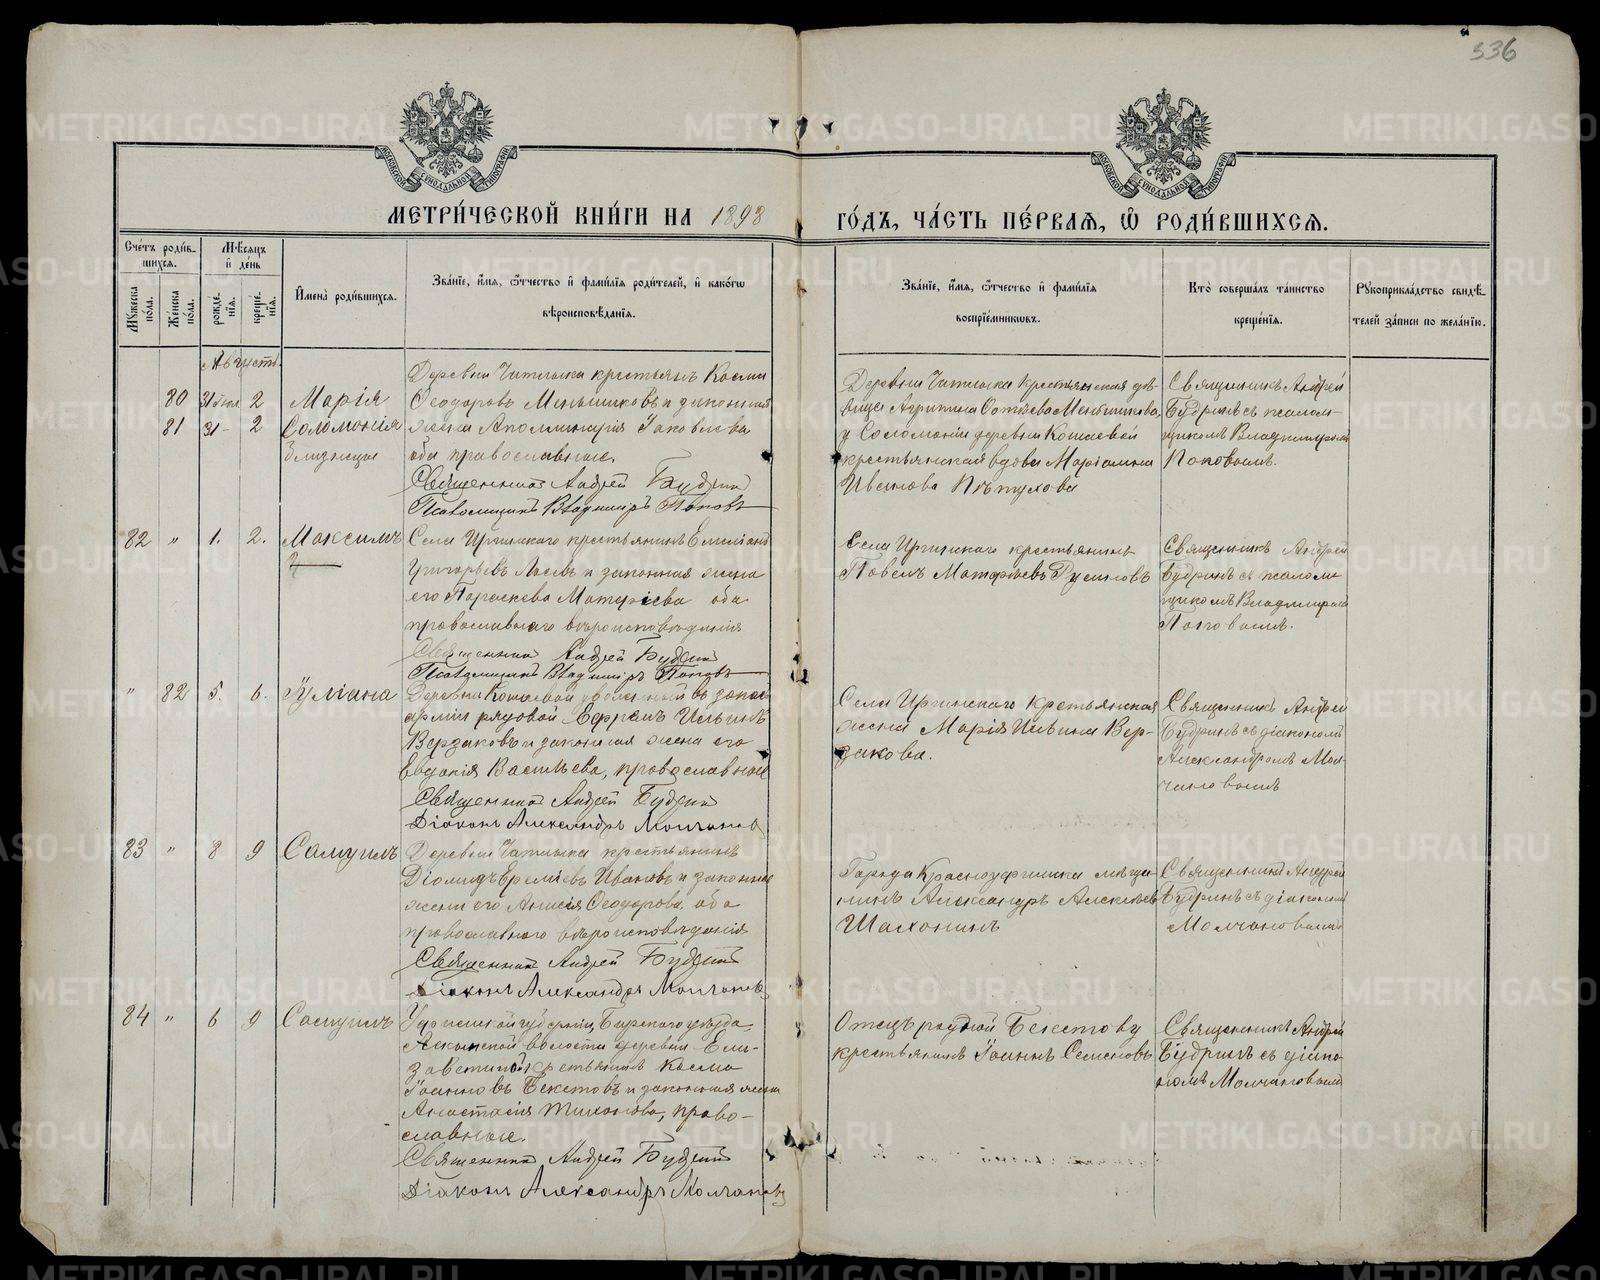 336
МЕТРИ́ЧЕСКОЙ КНИ́ГИ НА 1898 ГО́ДЪ, ЧА́СТЬ ПЕ́РВАЯ, Ѽ РОДИ́ВШИХСЯ.
Сче́тъ роди́вшихся.
Мꙋ́жеска по́ла.
Же́нска по́ла.
Мѣ́сяцъ и де́нь
рожде́нїя.
креще́нїя.
Имена̀ роди́вшихся.
Зва́нїе, и́мя, ѻ́тчество и фами́лїя роди́телей, и како́гѡ вѣроисповѣ́данїя.
Зва́нїе, и́мя, ѻ́тчество и фами́лїя воспрїе́мникѡвъ.
Кто̀ соверша́лъ та́инство креще́нїя.
Рꙋкоприкла́дство свидѣ́телей за́писи по жела́нїю.
Августъ
80 31 2 Марія
81 31 2 Соломонія
близнецы
Деревни Чатлыка крестьянъ Косма
Ѳеодоровъ Меньшиковъ и законная
жена Аполлинарія Іаковлева
оба православные.
Священникъ Андрей Будринъ
Псаломщикъ Владиміръ Поповъ
Деревни Чатлыка крестьянская дѣ-
вица Меньшикова,
у Соломоніи деревни Кошаевой
крестьянская вдова Маріамна
Иванова Пѣтухова
Священникъ Андрей
Будринъ съ псалом-
щикомъ Владиміромъ
Поповымъ.
82 " 1. 2. Максимъ
Села Иргинскаго крестьянинъ Емеліанъ
Григорьевъ и законная жена
его Параскева Матѳіева оба
православнаго вѣроисповѣданія
Священникъ Андрей Будринъ
Псаломщикъ Владиміръ Поповъ
Села Иргинскаго крестьянинъ
Павелъ Матѳіевъ Русиновъ
Священникъ Андрей
Будринъ съ псалом-
щикомъ Владиміромъ
Поповымъ.
" 82 5. 6. Іуліана
Деревни Кошаевой уволенный въ запас
арміи рядовой Ефремъ Ильинъ
Верзаковъ и законная жена его
Евдокія Васильева, православные
Священникъ Андрей Будринъ
Діаконъ Александръ Молчановъ
Села Иргинскаго крестьянская
жена Марія Ильина Вер-
закова.
Священникъ Андрей
Будринъ съ діакономъ
Александромъ Мол-
чановымъ
83 " 8 9 Самуилъ
Деревни Чатлыка крестьянинъ
Діомидъ Еремѣевъ Ивановъ и законная
жена его Анисія Ѳеодорова. оба
православнаго вѣроисповѣданія
Священникъ Андрей Будринъ
Діаконъ Александръ Молчановъ
Города Красноуфимска мѣща-
нинъ Александръ Алексѣевъ
Шахонинъ
Священникъ Андрей
Будринъ съ діакономъ
Молчановымъ
84 " 6 9 Самуилъ
Уфимской губерніи, Бирскаго уѣзда,
Аскынской волости деревни Ели-
заветиной крестьянинъ Косма
Іоанновъ Бекетовъ и законная жена
Анастасія Тихонова, право-
славные.
Священникъ Андрей Будринъ
Діаконъ Александръ Молчановъ
Отецъ родной Бекетову
крестьянинъ Іоаннъ Семеновъ
Священникъ Андрей
Будринъ съ діако-
номъ Молчановымъ
METRIKI.GASO-URAL.RU